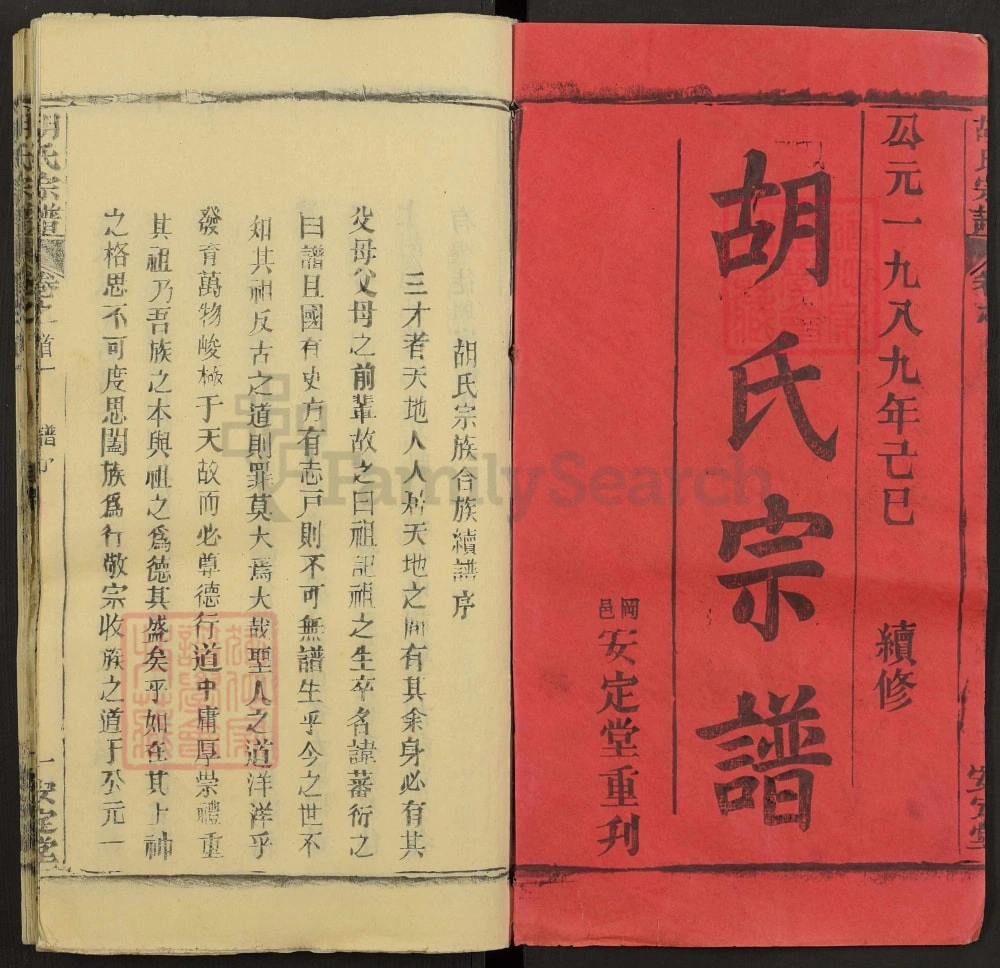 公元一九八九年己巳 續修
胡氏宗譜
岡邑安定堂重刋
胡氏宗族合族續譜序
三才者天地人人居天地之間有其余身必有其
父母父母之前輩故之曰祖記祖之生卒名諱蕃衍之
曰譜且國有史方有志戸則不可無譜生乎今之世不
知其祖反古之道則罪莫大焉大哉聖人之道洋洋乎
發育萬物峻極于天故而必尊德行道中庸厚崇禮重
其祖乃吾族之本與祖之爲德其盛矣乎如在其上神
之格思不可度思闔族爲行敬宗收族之道于公元一
胡氏宗譜 卷之首 譜序 一 安定堂
FamilySearch